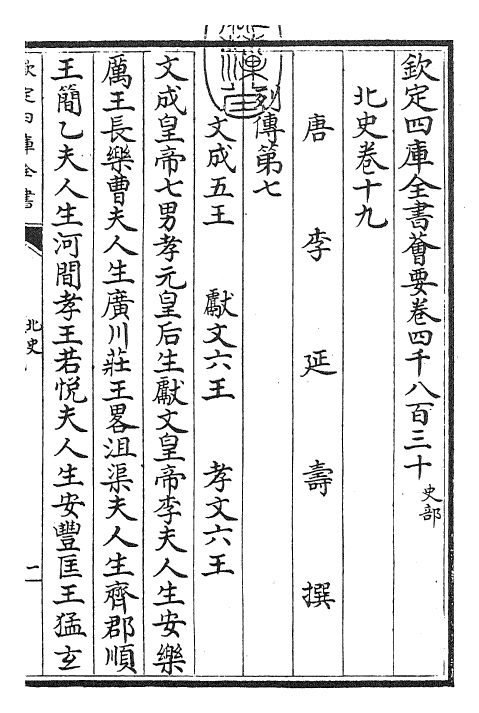 欽定四庫全書薈要卷四千八百三十 史部
北史卷十九
唐 李 延 壽 撰
列傳第七
文成五王 獻文六王 孝文六王
文成皇帝七男孝元皇后生獻文皇帝李夫人生安樂
厲王長樂曹夫人生廣川莊王畧沮渠夫人生齊郡順
王簡乙夫人生河間孝王若悅夫人生安豐匡王猛玄
欽定四庫全書
北史
一